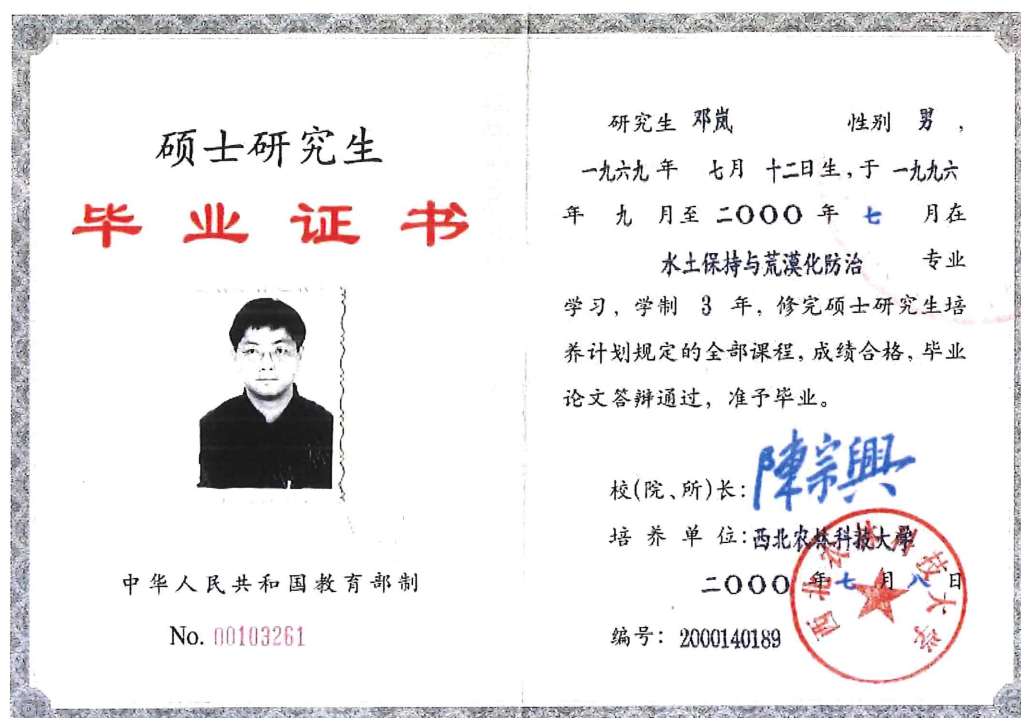 硕士研究生
毕业证书
中华人民共和国教育部制
No. 00103261
研究生 邓岚 性别 男,
一九六九年 七月 十二日生,于 一九九六
年 九 月至 二〇〇〇 年 七 月在
水土保持与荒漠化防治 专业
学习, 学制 3 年, 修完硕士研究生培
养计划规定的全部课程, 成绩合格, 毕业
论文答辩通过, 准予毕业。
校(院、所)长: 陳宗興
培养单位: 西北农林科技大学
二〇〇〇 年 七 月 八 日
编号: 2000140189
西北农林科技大学